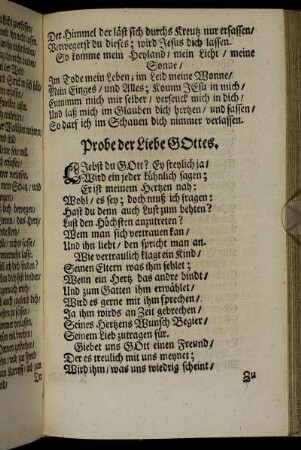 Der Himmel der läst sich durchs Kreutz nur erfassen/
Verwegerst du dieses; wird Jesus dich lassen.
So komme mein Heyland, mein Licht/ meine
Sonne/
Im Tode mein Leben; im Leid meine Wonne/
Mein Einges/ und Alles; Komm JEsu in mich/
Entnimm mich mir selber/ versenck mich in dich/
Und laß mich im Glauben dich hertzen/ und fassen/
So darf ich im Schauen dich nimmer verlassen.
Probe der Liebe GOttes.
LIebst du GOtt? Ey freylich ja/
Wird ein jeder kühnlich sagen;
Er ist meinem Hertzen nah:
Wohl/ es sey; doch muß ich fragen:
Hast du denn auch Lust zum behten?
Lust den Höchsten anzutreten?
Wem man sich vertrauen kan/
Und ihn liebt/ den spricht man an.
Wie vertraulich klagt ein Kind/
Seinen Eltern was ihm fehlet;
Wenn ein Hertz das andre bindt/
Und zum Gatten ihm erwählet/
Wird es gerne mit ihm sprechen/
Ja ihm wirds an Zeit gebrechen/
Seines Hertzens Wunsch Begier/
Seinem Lieb zutragen für.
Giebet uns GOtt einen Freund/
Der es treulich mit uns meynet;
Wird ihm/ was uns wiedrig scheint/
Zu